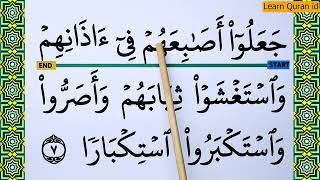 Learn Quran id
جَعَلُوٓا۟ أَصَٰبِعَهُمْ فِىٓ ءَاذَانِهِمْ
END START
وَٱسْتَغْشَوْا۟ ثِيَابَهُمْ وَأَصَرُّوا۟
وَٱسْتَكْبَرُوا۟ ٱسْتِكْبَارًا ٧